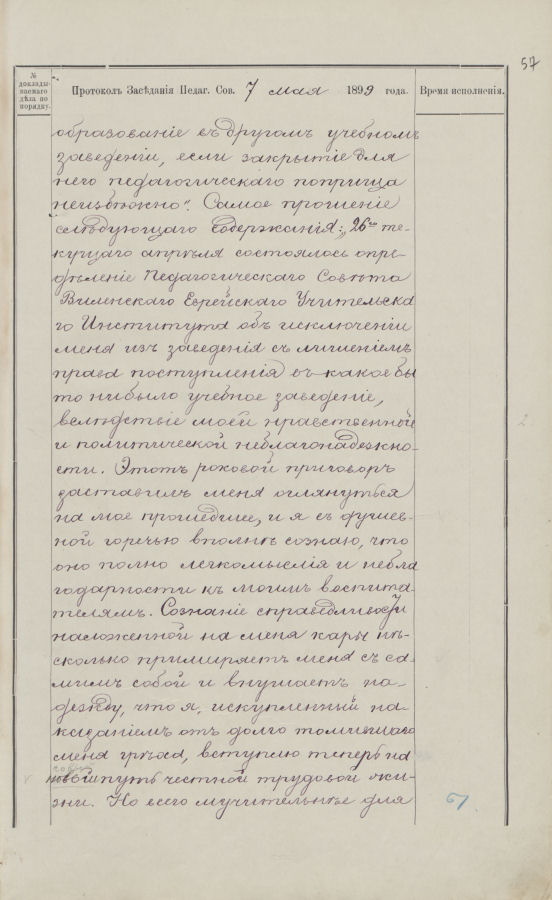 57
№ доклады-ваемаго дѣла по порядку.
Протоколъ Засѣданія Педаг. Сов. 7 мая 1899 года.
Время исполненія.
образованіе въ другомъ учебномъ
заведеніи, если закрытіе для
него педагогическаго поприща
неизбѣжно". Самое прошеніе
слѣдующаго содержанія: „26го те-
кущаго апрѣля состоялось опре-
дѣленіе Педагогическаго Совѣта
Виленскаго Еврейскаго Учительска
го Института объ исключеніи
меня изъ заведенія съ лишеніемъ
права поступленія въ какое бы
то нибыло учебное заведеніе,
вслѣдствіе моей нравственной
и политической неблагонадежно-
сти. Этотъ роковой приговоръ
заставилъ меня оглянуться
на мое прошедшее, и я съ душев-
ной горечью вполнѣ сознаю, что
оно полно легкомыслія и небла
годарности къ моимъ воспита-
телямъ. Сознаніе справедливости
наложенной на меня кары нѣ-
сколько примиряетъ меня съ са-
мимъ собой и внушаетъ на-
дежду, что я, искупленный на-
казаніемъ отъ долго томившаго
меня грѣха, вступлю теперь на
новый путь честной трудовой жи-
зни. Но всего мучительнѣе для
57.